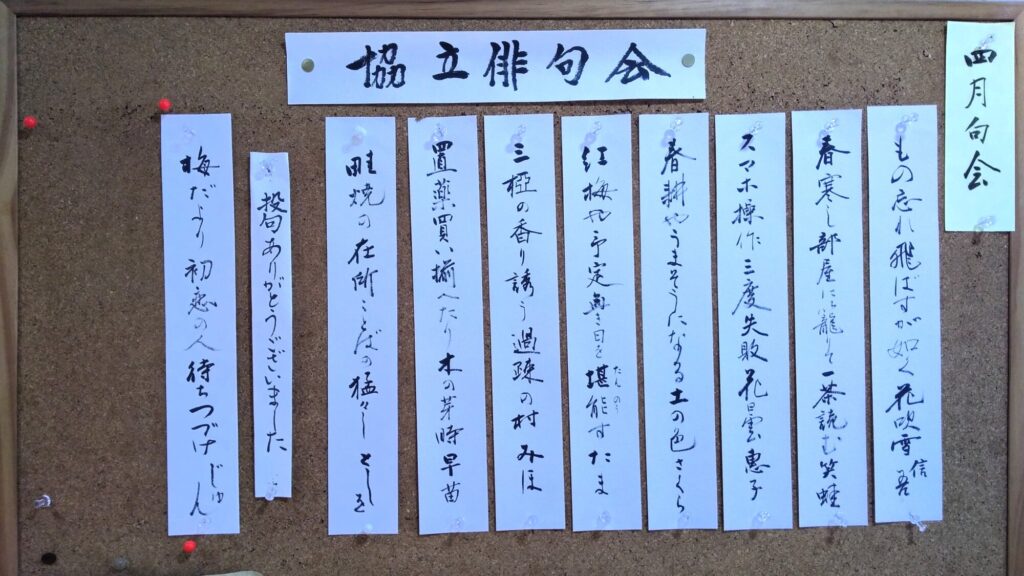 協立俳句会
四月句会
もの忘れ飛ばすが如く花吹雪 信吾
春寒し部屋に籠りて一茶読む 笑蛙
スマホ操作三度失敗花曇 惠子
春耕やうまそうになる土の色 さくら
紅梅や予定無き日を堪能す たま
たんのう
三椏の香り誘う過疎の村 みほ
置薬買い揃へたり木の芽時 早苗
畦焼の在所ことばの猛々し としを
投句ありがとうございました
梅だより初恋の人待ちつづけ じゅん